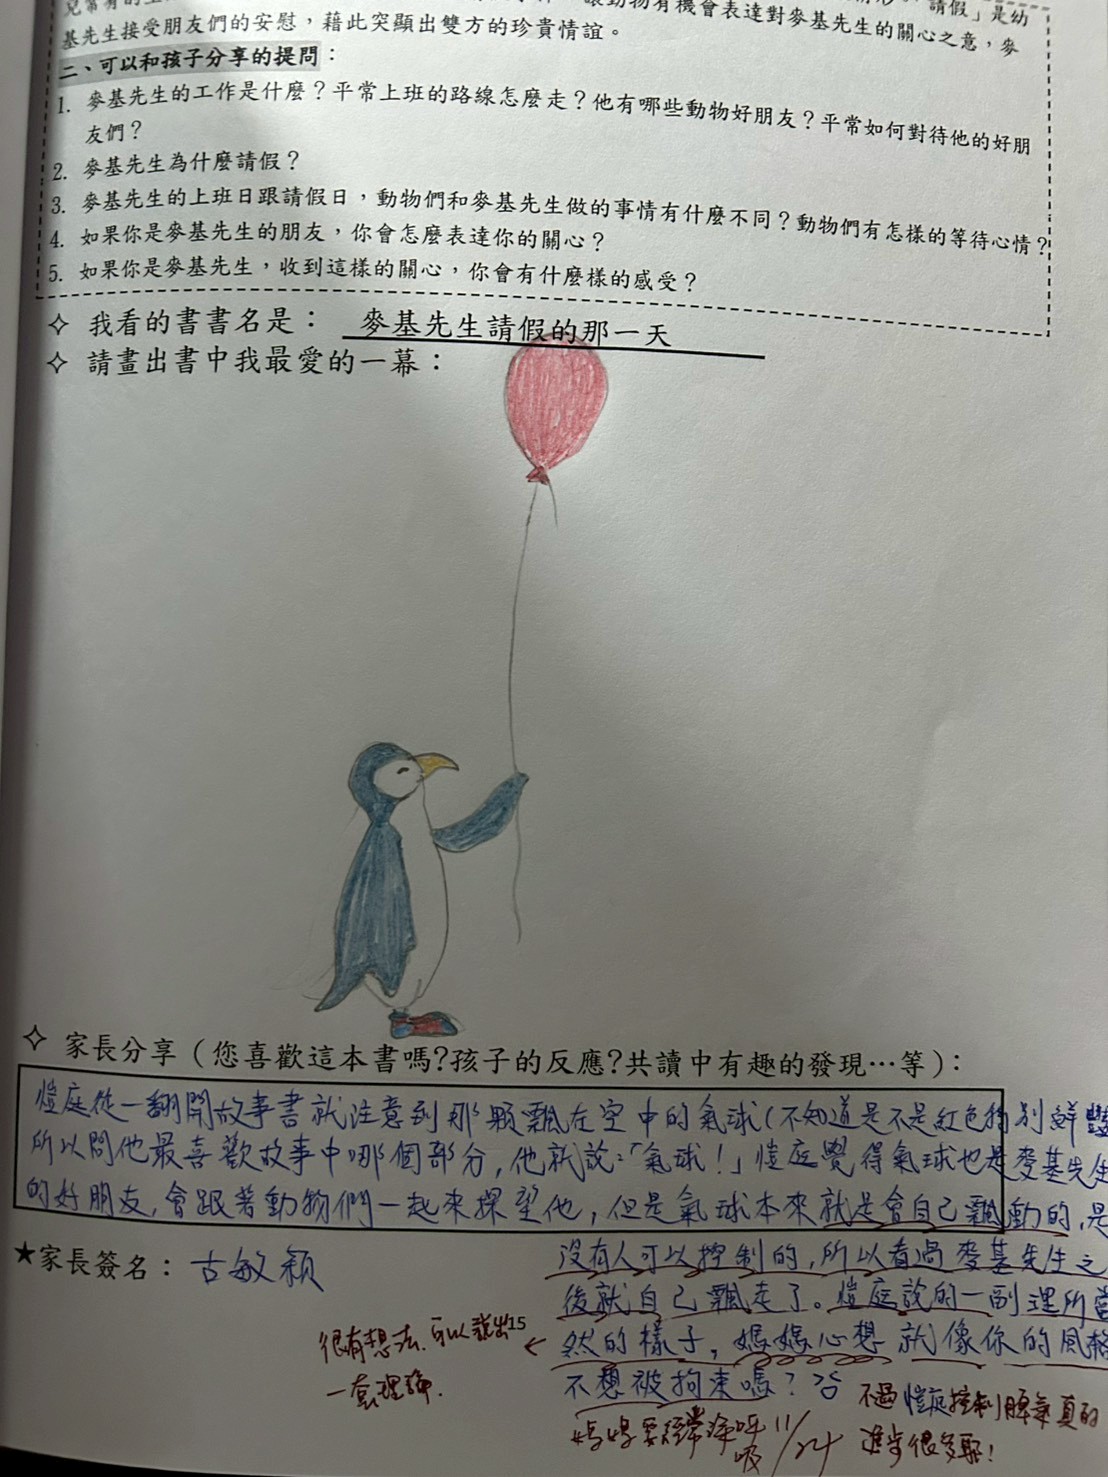 讓動物有機會表達對麥基先生的關心之意，麥
請假」是幼
基先生接受朋友們的安慰，藉此突顯出雙方的珍貴情誼。
二、可以和孩子分享的提問：
1. 麥基先生的工作是什麼？平常上班的路線怎麼走？他有哪些動物好朋友？平常如何對待他的好朋
友們？
2. 麥基先生為什麼請假？
3. 麥基先生的上班日跟請假日，動物們和麥基先生做的事情有什麼不同？動物們有怎樣的等待心情？
4. 如果你是麥基先生的朋友，你會怎麼表達你的關心？
5. 如果你是麥基先生，收到這樣的關心，你會有什麼樣的感受？
✧ 我看的書書名是： 麥基先生請假的那一天
✧ 請畫出書中我最愛的一幕：
✧ 家長分享（您喜歡這本書嗎?孩子的反應?共讀中有趣的發現…等）：
愷庭從一翻開故事書就注意到那顆飄在空中的氣球(不知道是不是紅色特別鮮豔
所以問他最喜歡故事中哪個部分，他就說：「氣球！」愷庭覺得氣球也是麥基先生
的好朋友，會跟著動物們一起來探望他，但是氣球本來就是會自己飄動的，是
沒有人可以控制的，所以看過麥基先生之
後就自己飄走了。愷庭說的一副理所當
然的樣子，媽媽心想就像你的風格
不想被拘束嗎？
★家長簽名： 古敏穎
很有想法，可以說出
一套理論.
15
媽媽要經常深呼
吸
11/24
不過愷庭控制脾氣真的
進步很多喔！